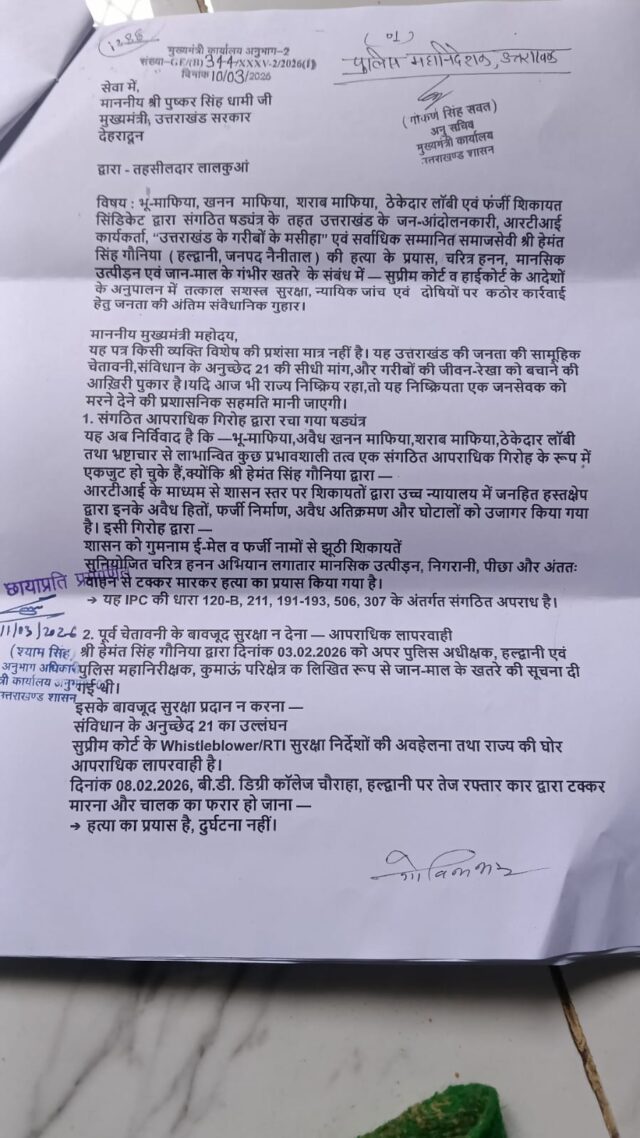 1288
मुख्यमंत्री कार्यालय अनुभाग-2
संख्या-GF/(B) 344/XXXV-2/2026(1)
दिनांक 10/03/2026
(01)
पुलिस महानिदेशक, उत्तराखण्ड
(गोकर्ण सिंह रावत)
अनु सचिव
मुख्यमंत्री कार्यालय
उत्तराखण्ड शासन
सेवा में,
माननीय श्री पुष्कर सिंह धामी जी
मुख्यमंत्री, उत्तराखंड सरकार
देहरादून
द्वारा - तहसीलदार लालकुआं
विषय : भू-माफिया, खनन माफिया, शराब माफिया, ठेकेदार लॉबी एवं फर्जी शिकायत
सिंडिकेट द्वारा संगठित षड्यंत्र के तहत उत्तराखंड के जन-आंदोलनकारी, आरटीआई
कार्यकर्ता, "उत्तराखंड के गरीबों के मसीहा" एवं सर्वाधिक सम्मानित समाजसेवी श्री हेमंत
सिंह गौनिया ( हल्द्वानी, जनपद नैनीताल ) की हत्या के प्रयास, चरित्र हनन, मानसिक
उत्पीड़न एवं जान-माल के गंभीर खतरे के संबंध में — सुप्रीम कोर्ट व हाईकोर्ट के आदेशों
के अनुपालन में तत्काल सशस्त्र सुरक्षा, न्यायिक जांच एवं दोषियों पर कठोर कार्रवाई
हेतु जनता की अंतिम संवैधानिक गुहार।
माननीय मुख्यमंत्री महोदय,
यह पत्र किसी व्यक्ति विशेष की प्रशंसा मात्र नहीं है। यह उत्तराखंड की जनता की सामूहिक
चेतावनी,संविधान के अनुच्छेद 21 की सीधी मांग,और गरीबों की जीवन-रेखा को बचाने की
आख़िरी पुकार है।यदि आज भी राज्य निष्क्रिय रहा,तो यह निष्क्रियता एक जनसेवक को
मरने देने की प्रशासनिक सहमति मानी जाएगी।
1. संगठित आपराधिक गिरोह द्वारा रचा गया षड्यंत्र
यह अब निर्विवाद है कि —भू-माफिया,अवैध खनन माफिया,शराब माफिया,ठेकेदार लॉबी
तथा भ्रष्टाचार से लाभान्वित कुछ प्रभावशाली तत्व एक संगठित आपराधिक गिरोह के रूप में
एकजुट हो चुके हैं,क्योंकि श्री हेमंत सिंह गौनिया द्वारा —
आरटीआई के माध्यम से शासन स्तर पर शिकायतों द्वारा उच्च न्यायालय में जनहित हस्तक्षेप
द्वारा इनके अवैध हितों, फर्जी निर्माण, अवैध अतिक्रमण और घोटालों को उजागर किया गया
है। इसी गिरोह द्वारा —
शासन को गुमनाम ई-मेल व फर्जी नामों से झूठी शिकायतें
सुनियोजित चरित्र हनन अभियान लगातार मानसिक उत्पीड़न, निगरानी, पीछा और अंततः
वाहन से टक्कर मारकर हत्या का प्रयास किया गया है।
→ यह IPC की धारा 120-B, 211, 191-193, 506, 307 के अंतर्गत संगठित अपराध है।
छायाप्रति प्रमाणित
11/03/2026
(श्याम सिंह)
अनुभाग अधिकारी
उत्तराखण्ड शासन
2. पूर्व चेतावनी के बावजूद सुरक्षा न देना — आपराधिक लापरवाही
श्री हेमंत सिंह गौनिया द्वारा दिनांक 03.02.2026 को अपर पुलिस अधीक्षक, हल्द्वानी एवं
पुलिस महानिरीक्षक, कुमाऊं परिक्षेत्र क लिखित रूप से जान-माल के खतरे की सूचना दी
गई थी।
इसके बावजूद सुरक्षा प्रदान न करना —
संविधान के अनुच्छेद 21 का उल्लंघन
सुप्रीम कोर्ट के Whistleblower/RTI सुरक्षा निर्देशों की अवहेलना तथा राज्य की घोर
आपराधिक लापरवाही है।
दिनांक 08.02.2026, बी.डी. डिग्री कॉलेज चौराहा, हल्द्वानी पर तेज रफ्तार कार द्वारा टक्कर
मारना और चालक का फरार हो जाना —
→ हत्या का प्रयास है, दुर्घटना नहीं।